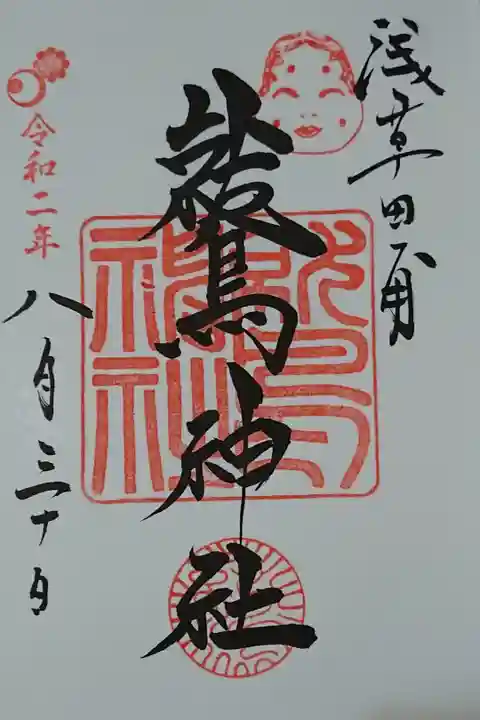 浅草田甫
鷲神社
令和二年
八月三十日